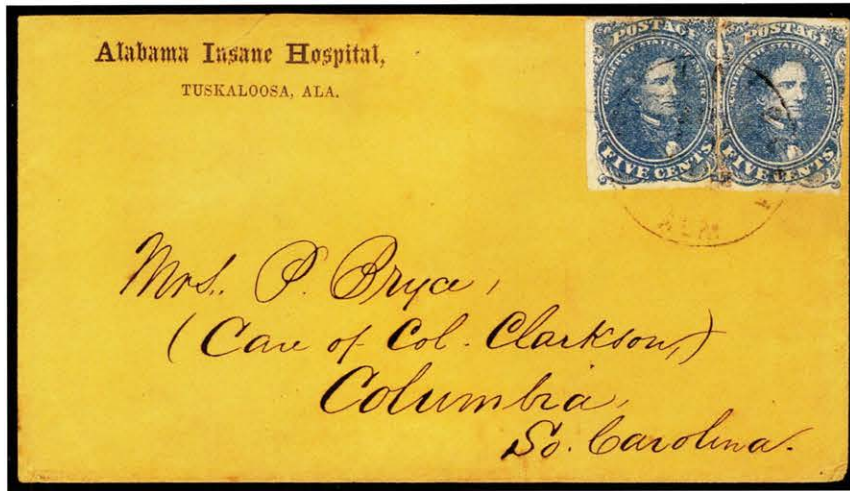 Alabama Insane Hospital,
TUSKALOOSA, ALA.
POSTAGE POSTAGE
CONFEDERATE STATES OF AMERICA CONFEDERATE STATES OF AMERICA
FIVE CENTS FIVE CENTS
Mrs. P. Bryce,
(Care of Col. Clarkson,)
Columbia,
So. Carolina.